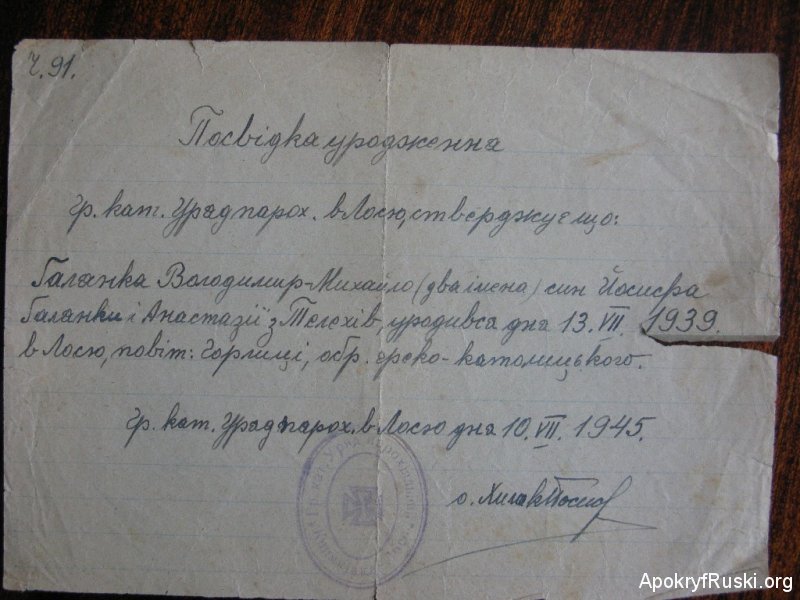 Ч. 91.
Посвідка уродження
Гр. кат. Урад парох. в Лосю, стверджує що:
Галанка Володимир-Михайло (два імена) син Йосифа
Галанки і Анастазії з Телехів уродився дня 13. VII. 1939.
в Лосю, повіт: Горлиці, обр. грєко-католицького.
Гр. кат. Урад парох. в Лосю дня 10. VII. 1945.
о.
ApokryfRuski.org